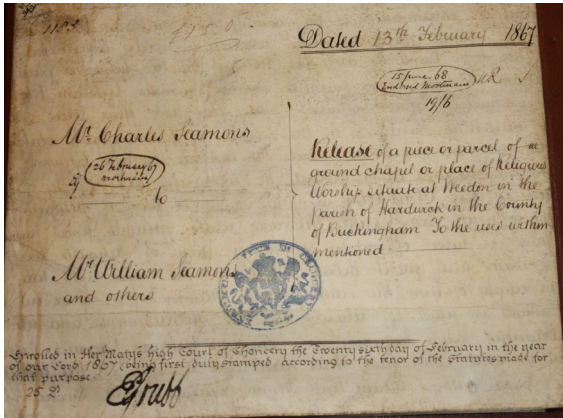 1183
£15.0.
Dated 13th February 1867
15 June 68
Enolled Mortmain
19/6
Mr. Charles Seamons
26 February 67
mortmain
to
Release of a piece or parcel of
ground chapel or place of Religious
Worship situate at Weedon in the
parish of Hardwick in the County
of Buckingham To the uses within
mentioned
Mr. William Seamons
and others
Enrolled in Her Matys high Court of Chancery the Twenty sixth day of February in the year
of our Lord 1867 (being first duly stamped) according to the tenor of the Statutes made for
that purpose.